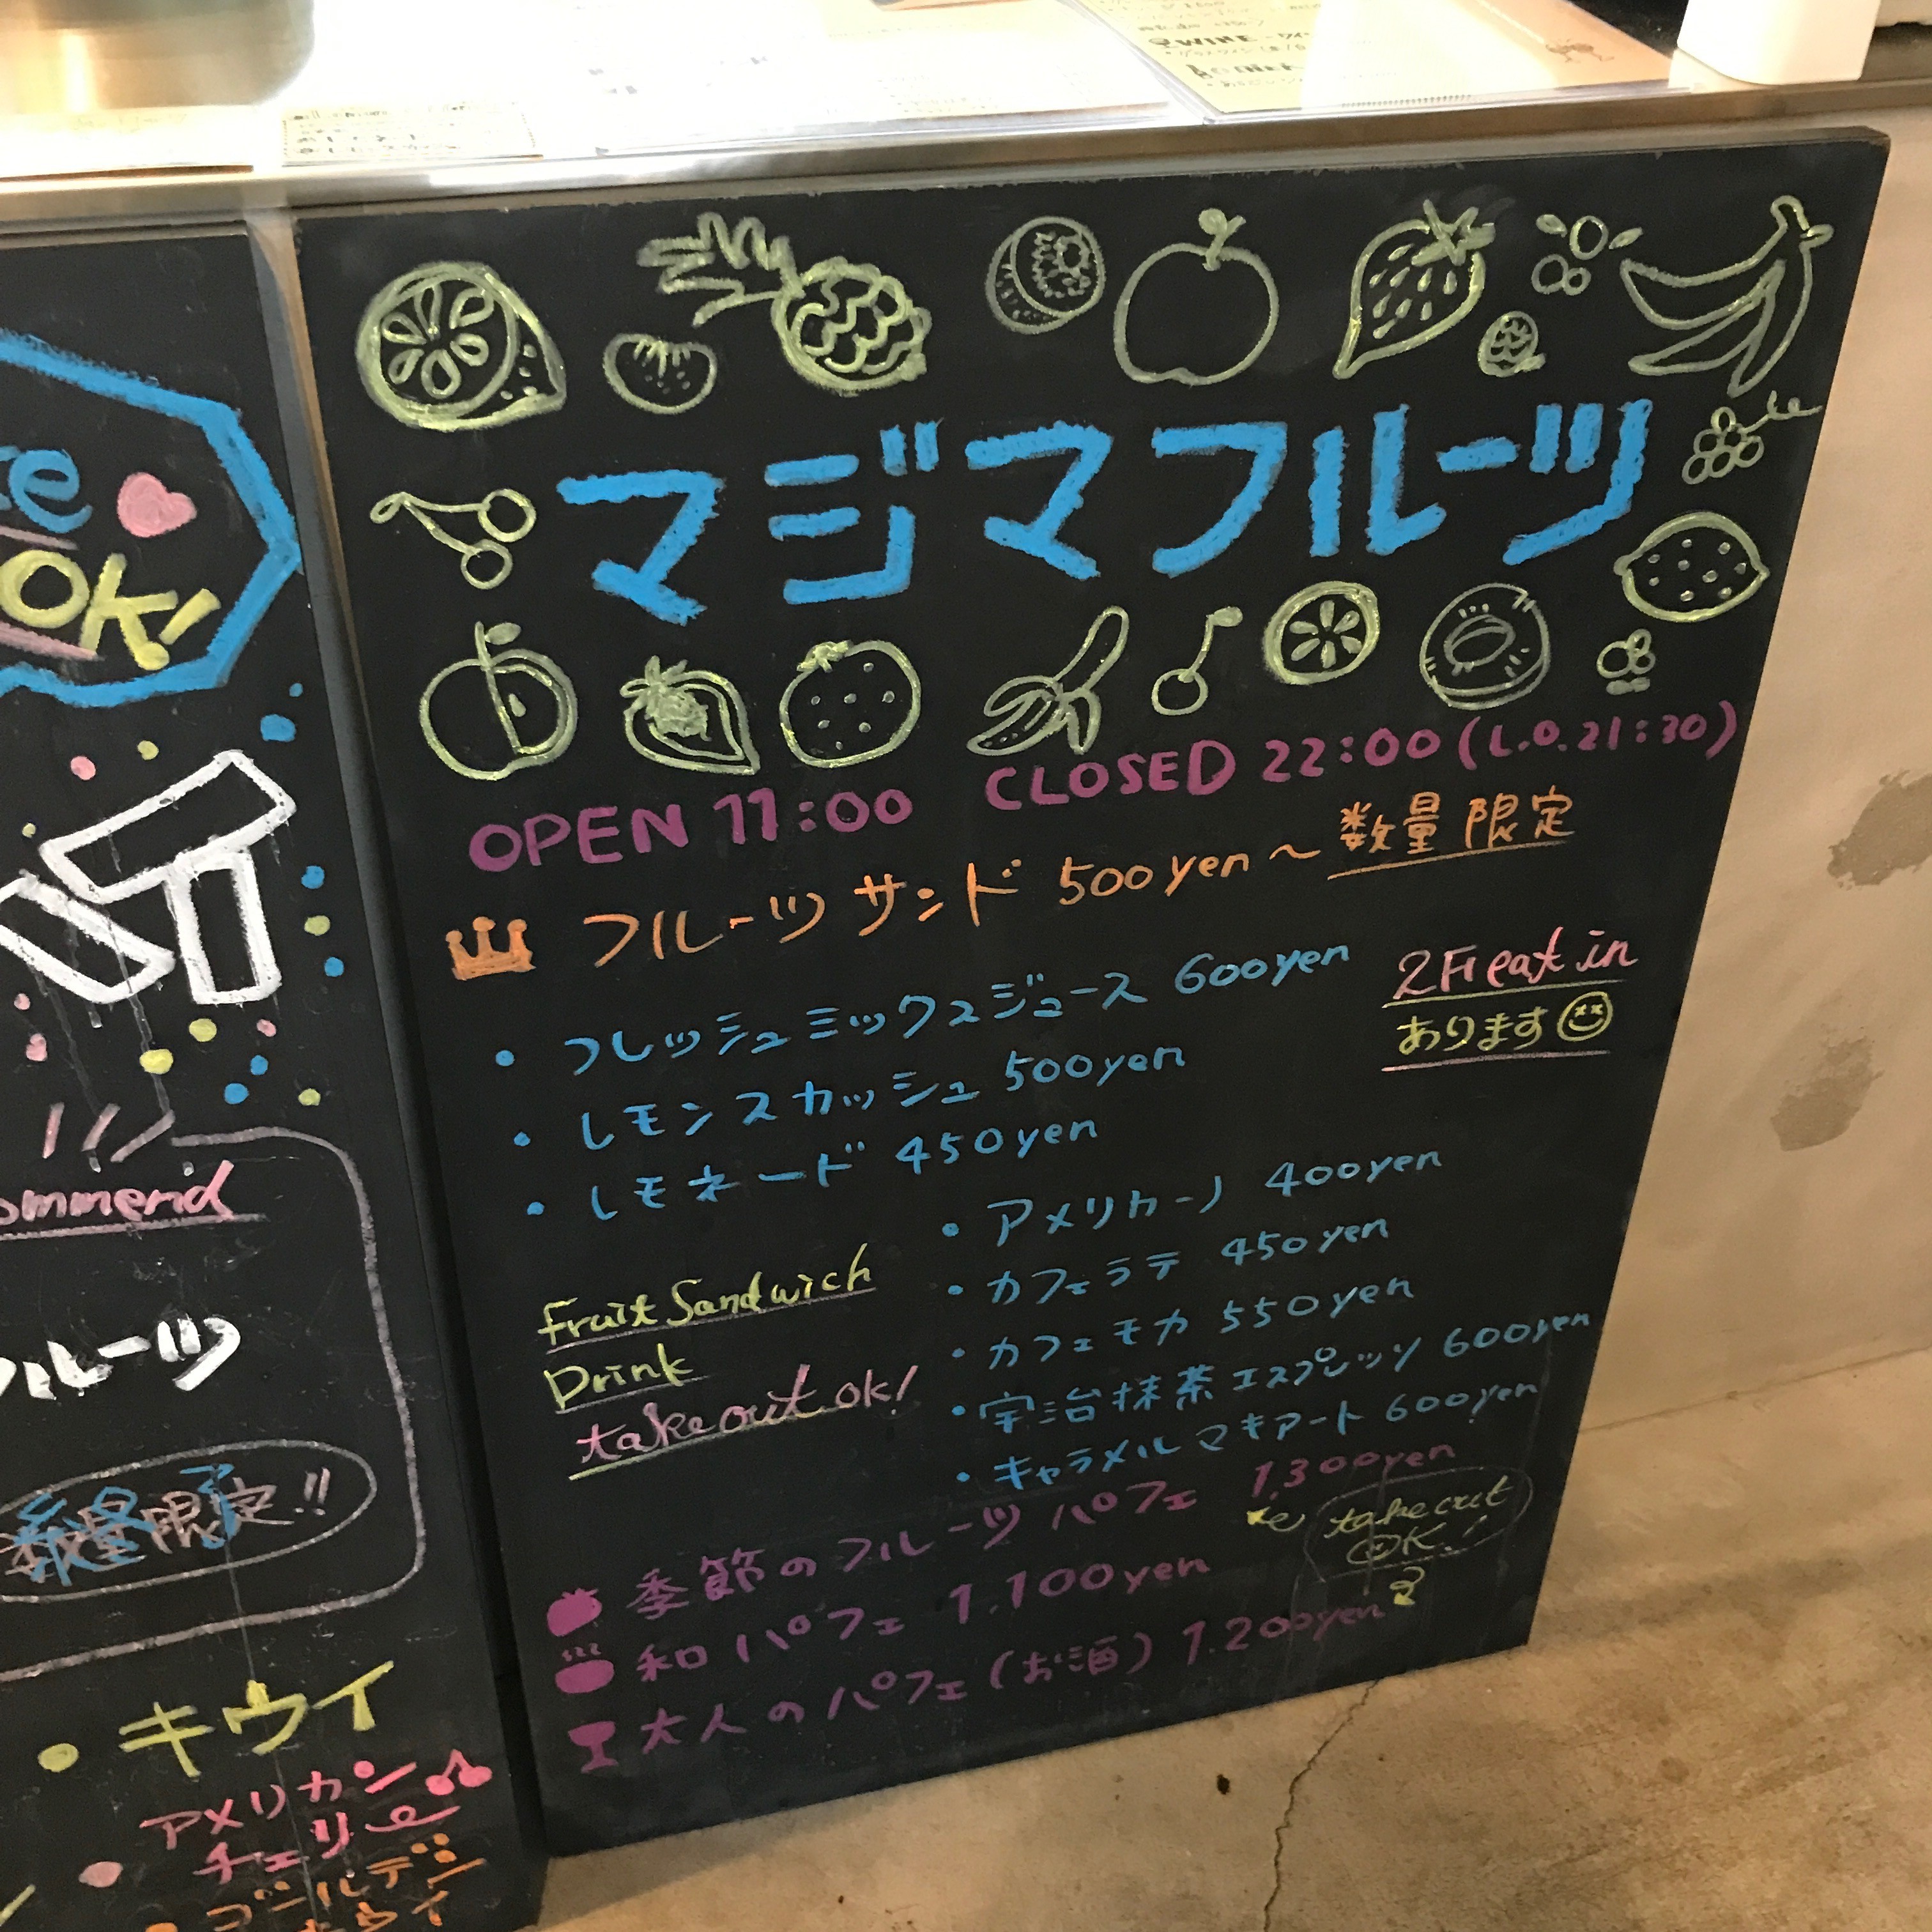 マジマフルーツ
OPEN 11:00 CLOSED 22:00 (L.O.21:30)
フルーツサンド 500yen～数量限定
・フレッシュミックスジュース 600yen
2F eat in
あります
・レモンスカッシュ 500yen
・レモネード 450yen
・アメリカーノ 400yen
・カフェラテ 450yen
・カフェモカ 550yen
・宇治抹茶エスプレッソ 600yen
・キャラメルマキアート 600yen
Fruit Sandwich
Drink
take out ok!
季節のフルーツパフェ 1,300yen
和パフェ 1,100yen
大人のパフェ(お酒) 1,200yen
take out
OK!
OK!
ommend
フルーツ
数量限定!!
・キウイ
アメリカン
チェリー
ゴールデン
キウイ
WINE